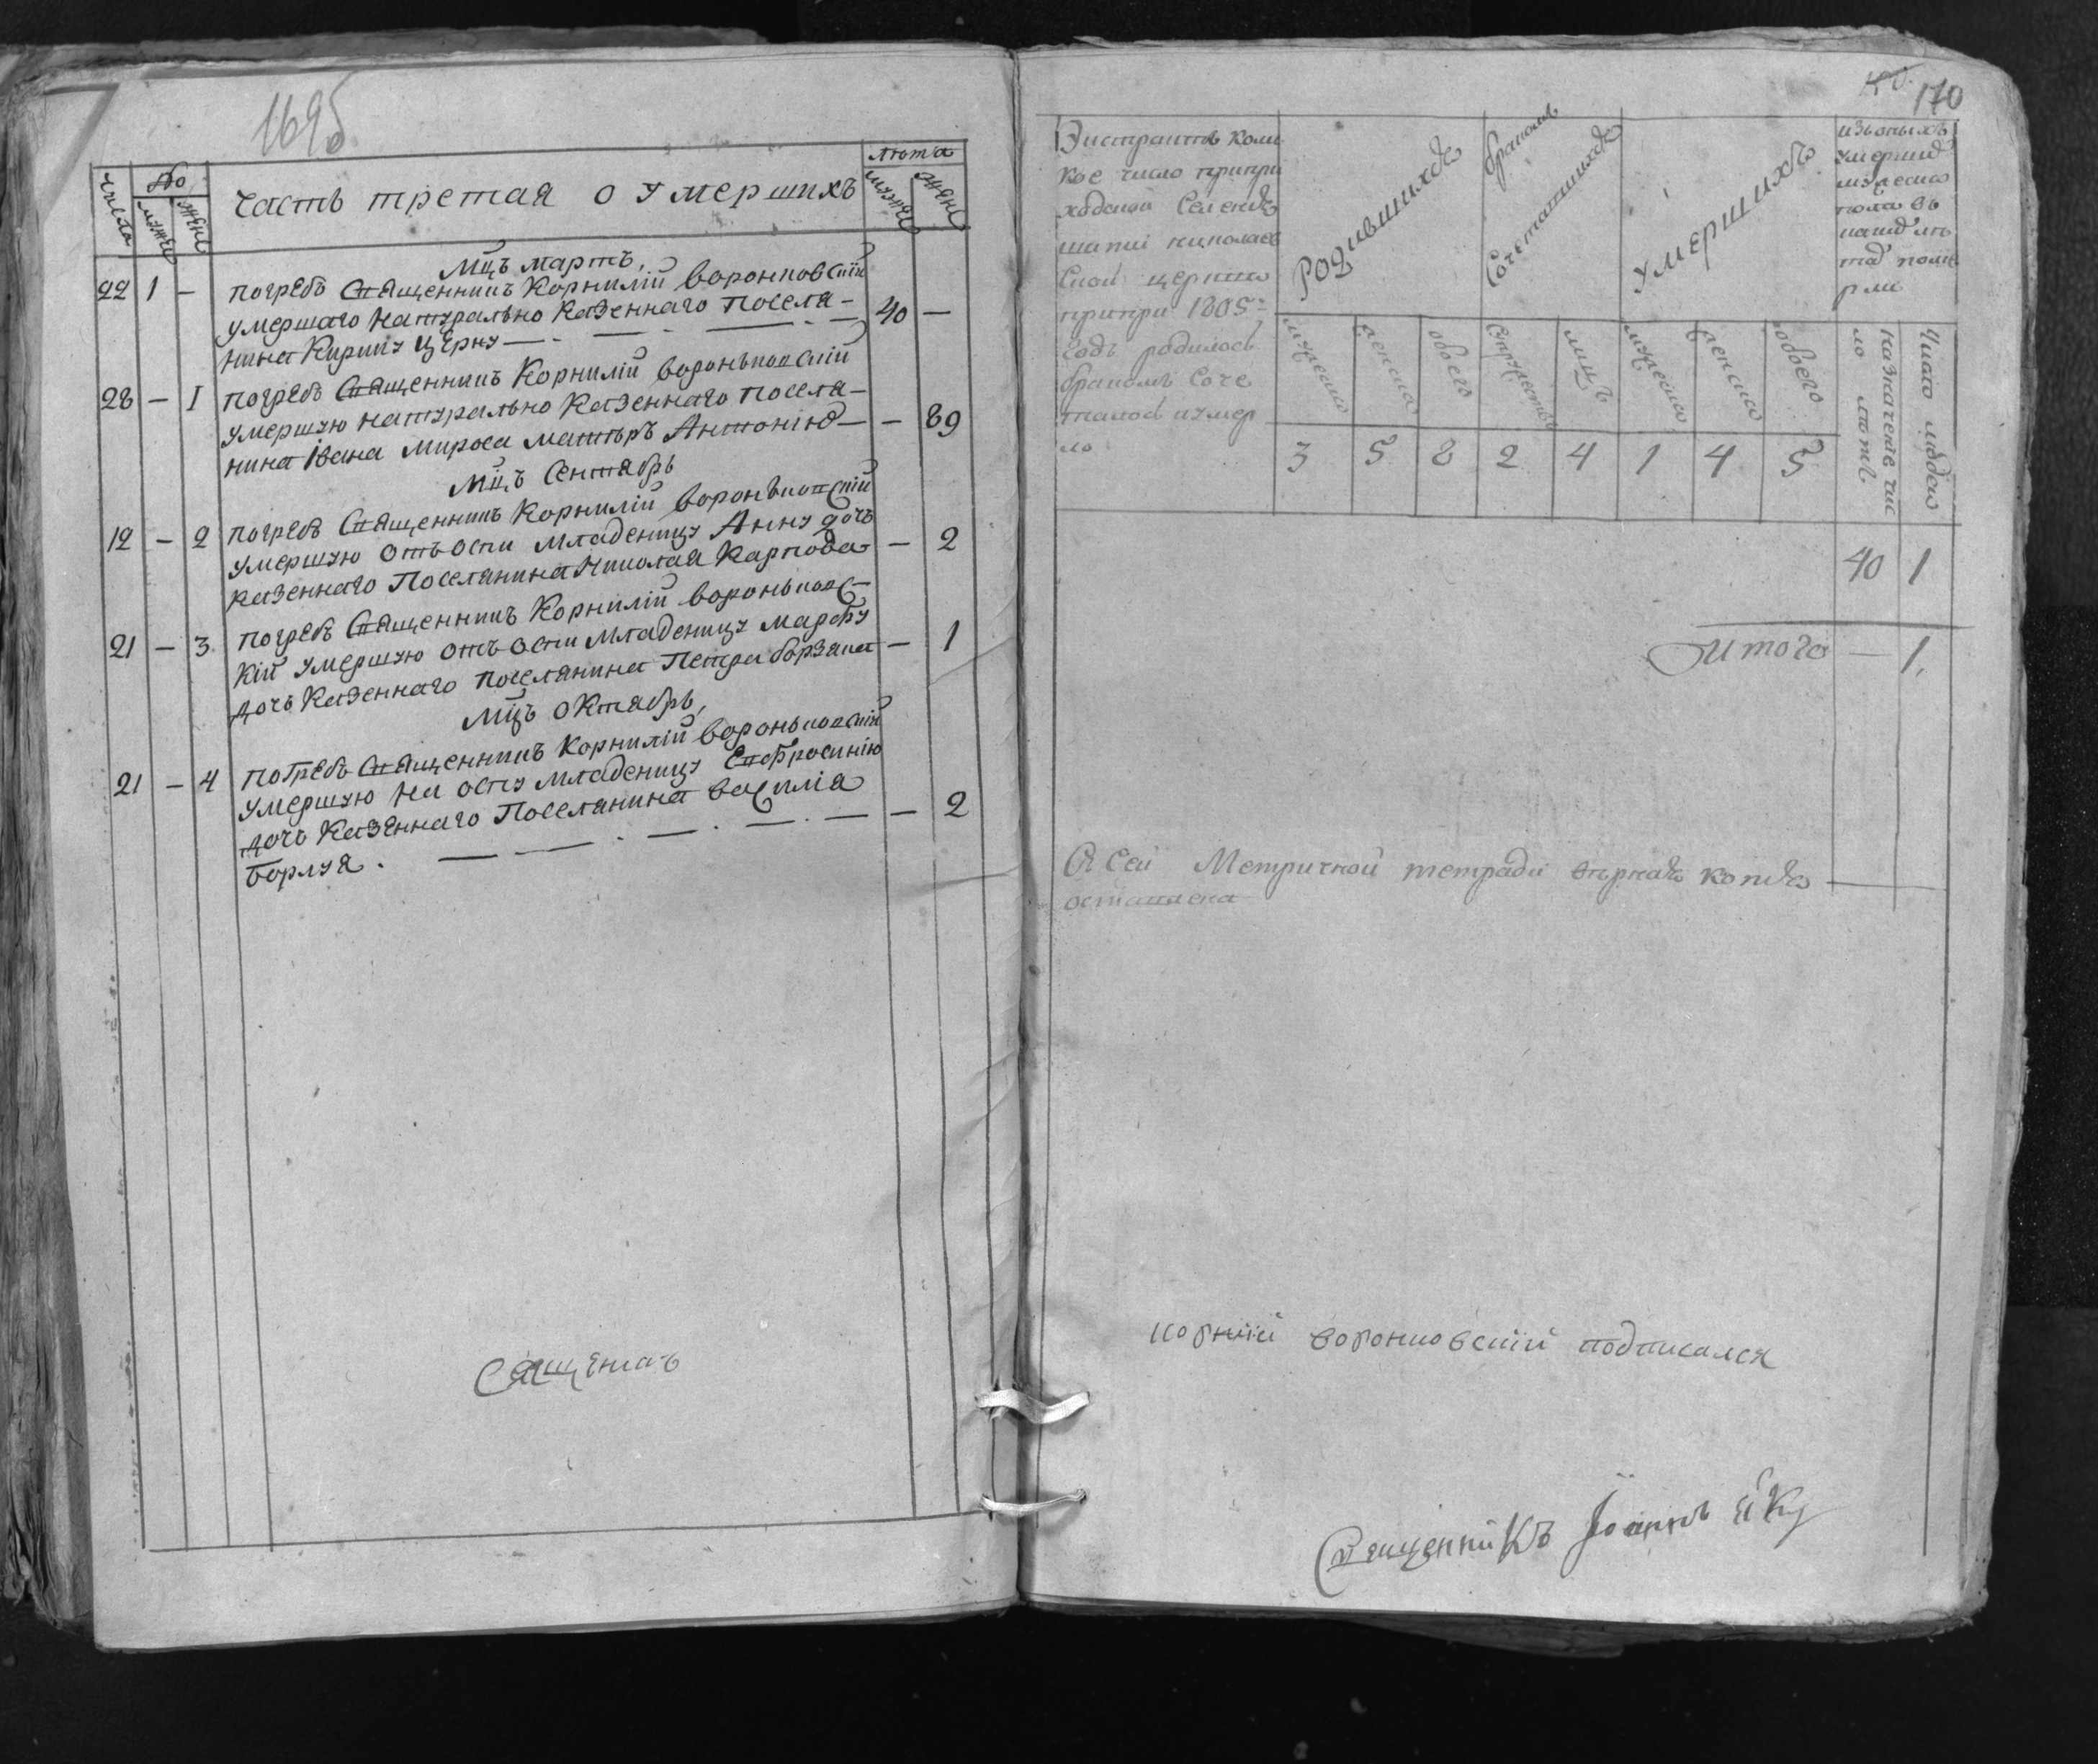 1695
числа
№
мужеска
женска
Часть третая о умершихъ
лѣта
мужеска
женска
Мцъ мартъ,
22 1 — погребъ Священникъ Корнилій воронковскій
умершаго натурально казеннаго поселя-
нина Кирилу церну 40 —
28 — 1 погребъ Священникъ Корнилій вороньковскій
умершую натурально казеннаго поселя-
нина Івана мироса матѣръ Антонію — 89
Мцъ Сентябрь
12 — 2 погребъ Священникъ Корнилій вороньковскій
умершую отъ оспи младеницу Анну дочъ
казеннаго Поселянина Николая Карпова — 2
21 — 3 погребъ Священникъ Корнилій вороньковс-
кій умершую отъ оспи младеницу марфу
дочь казеннаго поселянина Петра борзака — 1
Мцъ октябрь,
21 — 4 погребъ Священникъ корнилій вороньковскій
умершую на оспу младеницу Евфросинію
дочъ казеннаго Поселянина василія
борлуя. — 2
Священикъ
170
Экстрактъ коли
кое число при при
ходской
николаев
ской церкви
при при 1805:
годъ родилось
бракомъ соче
талось и умер
ло
Родившихъ
бракомъ
Сочетавшихъ
умершихъ
изъ оныхъ
умершихъ
мужеска
пола въ
мужеска
женска
обоего
лицъ
мужеска
женска
обоего
Число людей
3 5 8 2 4 1 4 5
40 1
Итого — 1.
С сей Метричной тетради
оставлена
корнілій воронковскій подписался
Священникъ Іоаннъ